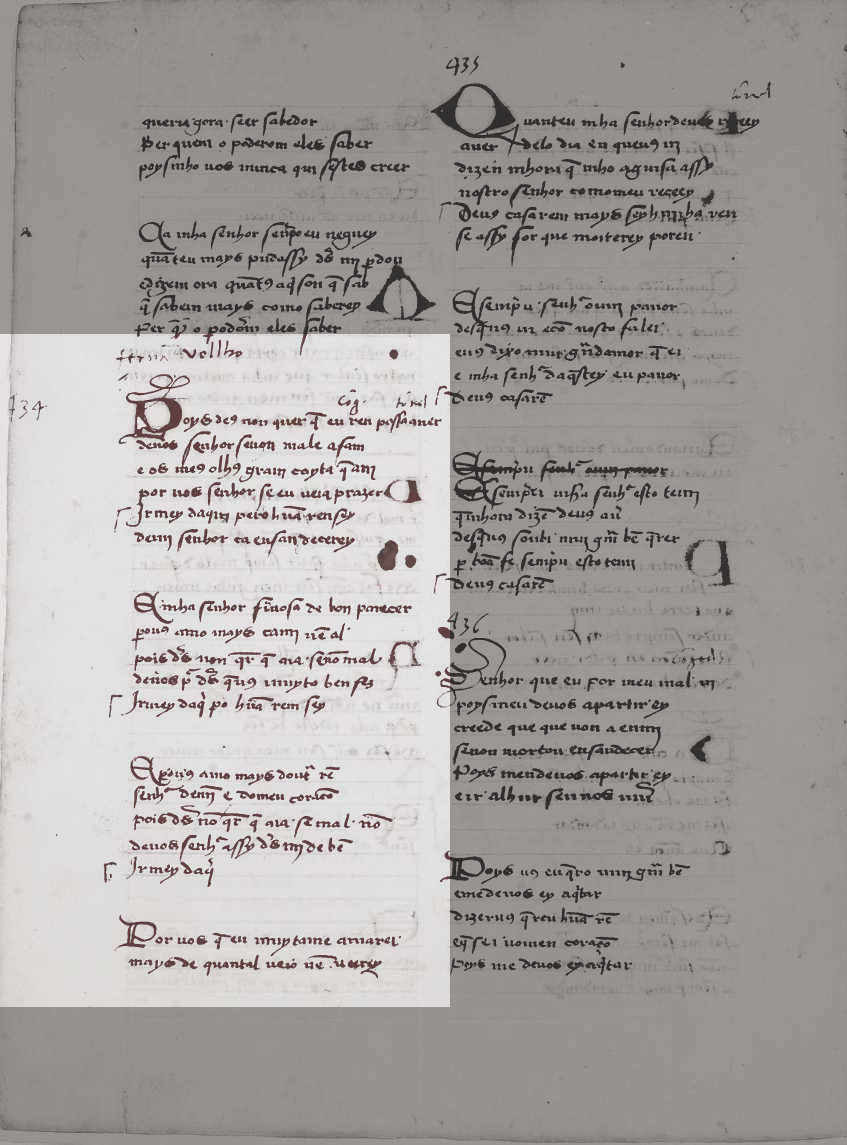 queria gora seer sabedor
Per quem o poderom eles saber
poys mho uos nunca qui
creer
Ca mha senhor senp̃ eu neguey
quãteu mays pudassy dš mj ꝑdou
e dizem ora quãtꝯ aq̃ son q̃ sab
q̃ sabem mays como saberey
Per q̃ o podõm eles saber
Vellho
434
Poys deꝯ non quer q̃ eu ren possa auer
deuos senhor senon male afam
e os meꝯ olhꝯ gram coyta q̃ am
por uos senhor se eu ueia prazer
Irmey daqui pero hũa ren sey
deuꝯ senhor ca ensandecerey
E mha senhor fremosa de bon parecer
ꝑouꝯ amo mays cam nẽ al
pois dš non q̃r q̃ aia senõ mal
deuos p̃ dš q̃ uꝯ muyto ben fez
Irmey daq̃ ꝑo hũa rem sey
E ꝑouꝯ amo mays doutᵃ rẽ
senhᵃ
e do meu coraçõ
pois dš nõ q̃r q̃ aia se mal nõ
deuos senhᵃ assy dš mj de bẽ
Irmey daq̃
Por uos q̃ eu muytame amarei
mays de quantal ueio nẽ ueerey
435
Quanteu mha senhor deuos receey
auer delo dia en que uꝯ uj
dizen mhora q̃ mho aguisa assy
nostro senhor como meu receey
Deuꝯ casarem mays seyhũnha ren
se assy for que morterey poren
E sempru senhᵃ ouui pauor
desq̃ uꝯ ui e cõ uosco falei
e uꝯ dixo mui grãdamor q̃ ei
e mha senhᵃ daq̃stey eu pauor
Deuꝯ casarẽ
E sempru senhᵃ ouui pauor
E senprei mha senhᵃ esto temi
q̃ mhora dizẽ deuꝯ auj
desq̃ uꝯ soubi mui grã bẽ q̃rer
ꝑ bõa fe senpru esto temi
Deuꝯ casarẽ
436
Senhor que eu por meu mal uj
poys meu deuos apartir ey
creede que que non a en mj
senon mortou ensandecer
Poys men deuos apartir ey
e ir alhur sen uos uiuꝰ
Poys uꝯ eu q̃ro mui grã bẽ
e me deuos ey aq̃tar
dizer uꝯ q̃reu hũa rẽ
e q̃ sei no men coraçõ
Poys me deuos ey aq̃tar